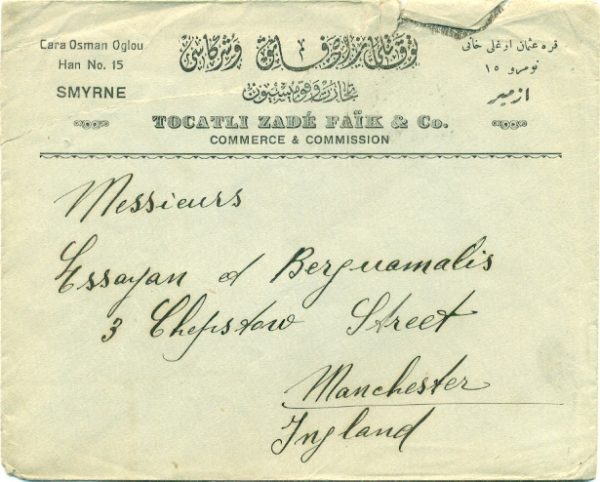 Cara Osman Oglou
Han No. 15
SMYRNE
توقاتلی زاده فائق وشركاسی
تجارت و قومسیون
قره عثمان اوغلی خانی
نومرو ١٥
ازمیر
TOCATLI ZADÉ FAÏK & Co.
COMMERCE & COMMISSION
Messieurs
Essayan et Berguamalis
3 Chepstow Street
Manchester
Ingland